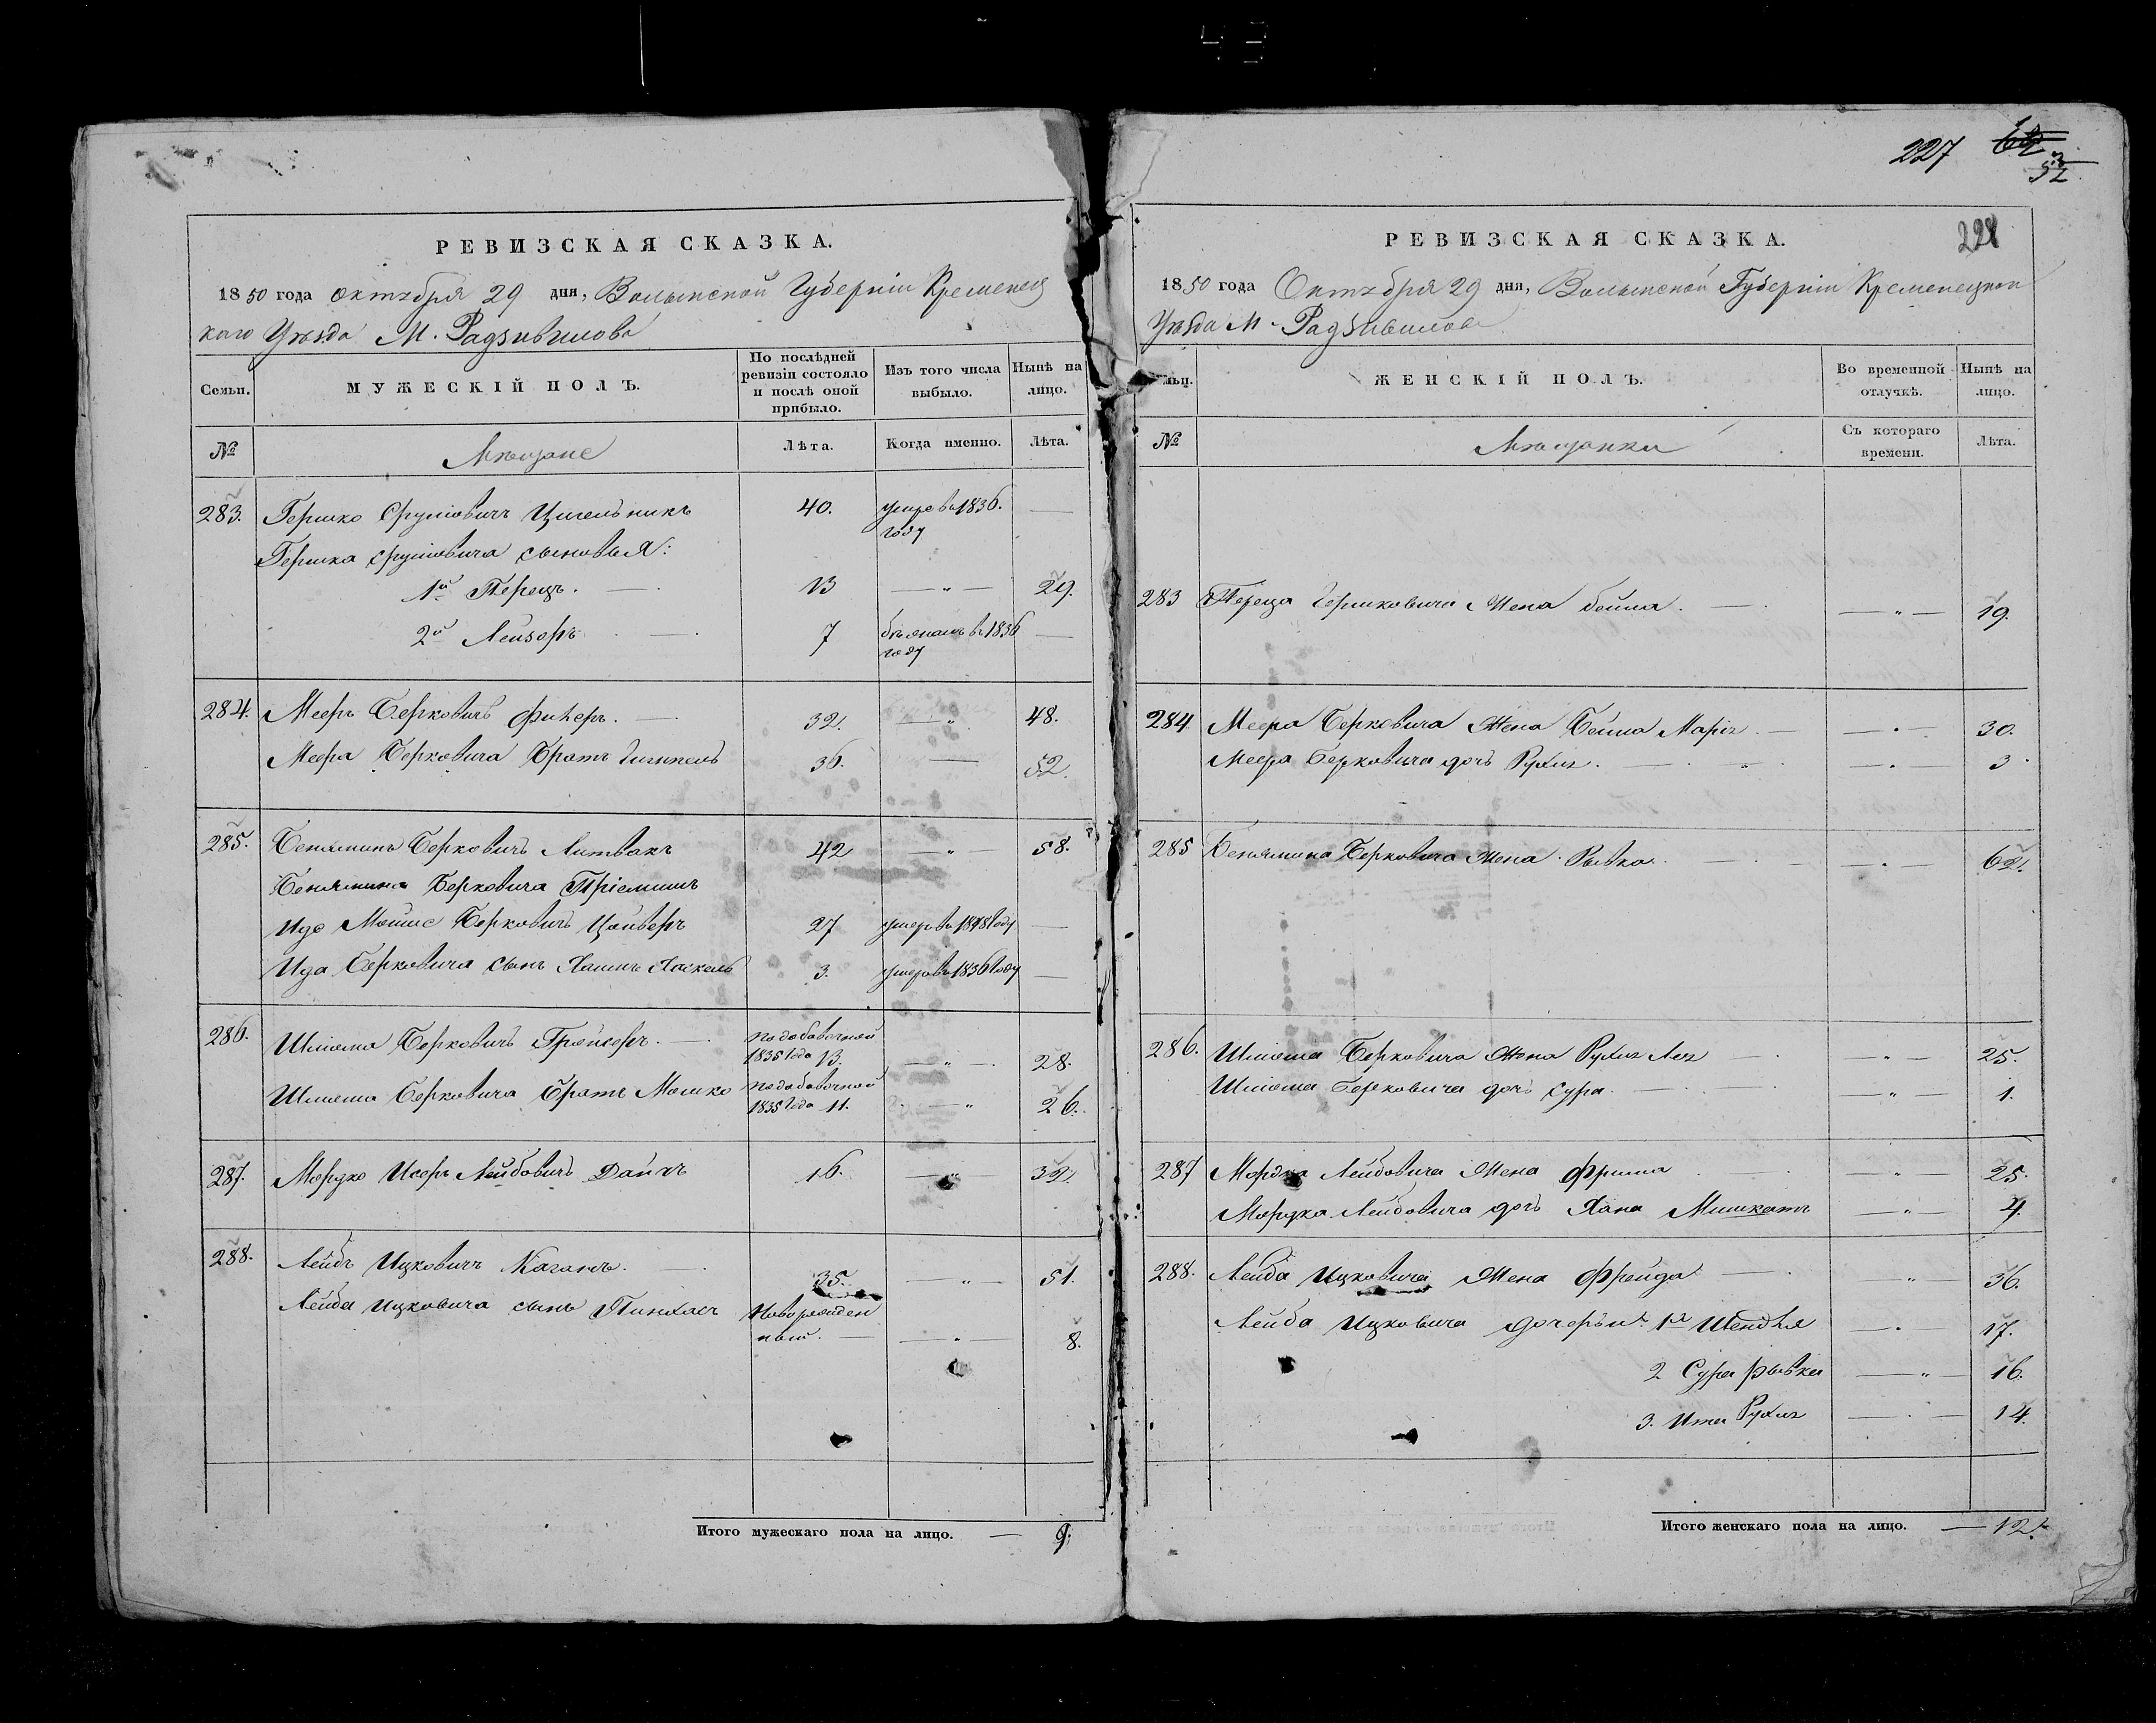 РЕВИЗСКАЯ СКАЗКА.
1850 года Октября 29 дня, Волынской Губернiи Кременец
каго Уѣзда М. Радзивилова
Семьи.
МУЖЕСКІЙ ПОЛЪ.
По послѣдней ревизіи состояло и послѣ оной прибыло.
Изъ того числа выбыло.
Нынѣ на лицо.
№
Мѣщане
Лѣта.
Когда именно.
Лѣта.
283. Гершко Срулiовичъ Цигельникъ 40. умре въ 1836. году —
Гершка Срулiовича сыновья:
1й Перецъ. — 13 — „ — 29.
2й Лейзоръ — 7 въ 1836 году —
284. Мееръ Берковичъ Фишеръ. — 32. — „ 48.
Меера Берковича братъ 36. — 52.
285. Беняминъ Берковичъ Литвакъ 42 — „ — 58.
Бенямина Берковича Прiемышъ
Идо Мошко Берковичъ 27 умеръ въ 1848 году —
Ида Берковича сынъ Хаимъ Хаскель 3. умеръ въ 1836 году —
286. Шлiома Берковичъ По добавочной 1835 года 13. — „ — 28.
Шлiома Берковича братъ Мошко По добавочной 1835 года 11. — „ 26.
287. Мордко Исеръ Лейбовичъ 16. — „ — 32.
288. Лейбъ Ицковичъ Каганъ. — 35. — „ — 51.
Лейба Ицковича сынъ Пинхасъ Новорожден ный. — „ — 8.
Итого мужескаго пола на лицо. — 9.
227
52
228
РЕВИЗСКАЯ СКАЗКА.
1850 года Октября 29 дня, Волынской Губернiи Кременецкаго
Уѣзда М. Радзивилова
ЖЕНСКІЙ ПОЛЪ.
Во временной отлучкѣ.
Нынѣ на лицо.
№
Мѣщанки
Съ котораго времени.
Лѣта.
283 Переца Гершковича жена Бейла. — — „ — 19.
284 Меера Берковича жена Бейла Марiя. — — „ — 30.
Меера Берковича дочь Рухля. — „ — 3.
285 Бенямина Берковича жена Рывка. — — „ — 62.
286. Шлiома Берковича жена Рухля Лея — — „ — 25.
Шлiома Берковича дочь Сура. — — „ — 1.
287 Мордка Лейбовича жена Фрима „ 25.
Мордка Лейбовича дочь Хана — „ — 4.
288. Лейба Ицковича жена Фрейда — „ 36.
Лейба Ицковича дочери: 1я Шендля — „ — 17.
2 Сура Рывка — „ — 16.
3. Ита Рухля — „ — 14.
Итого женскаго пола на лицо. — 12.